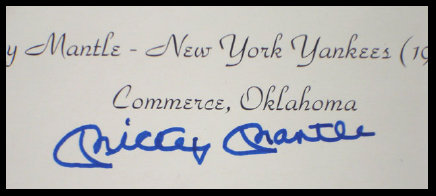 y Mantle - New York Yankees (19
Commerce, Oklahoma
Mickey Mantle